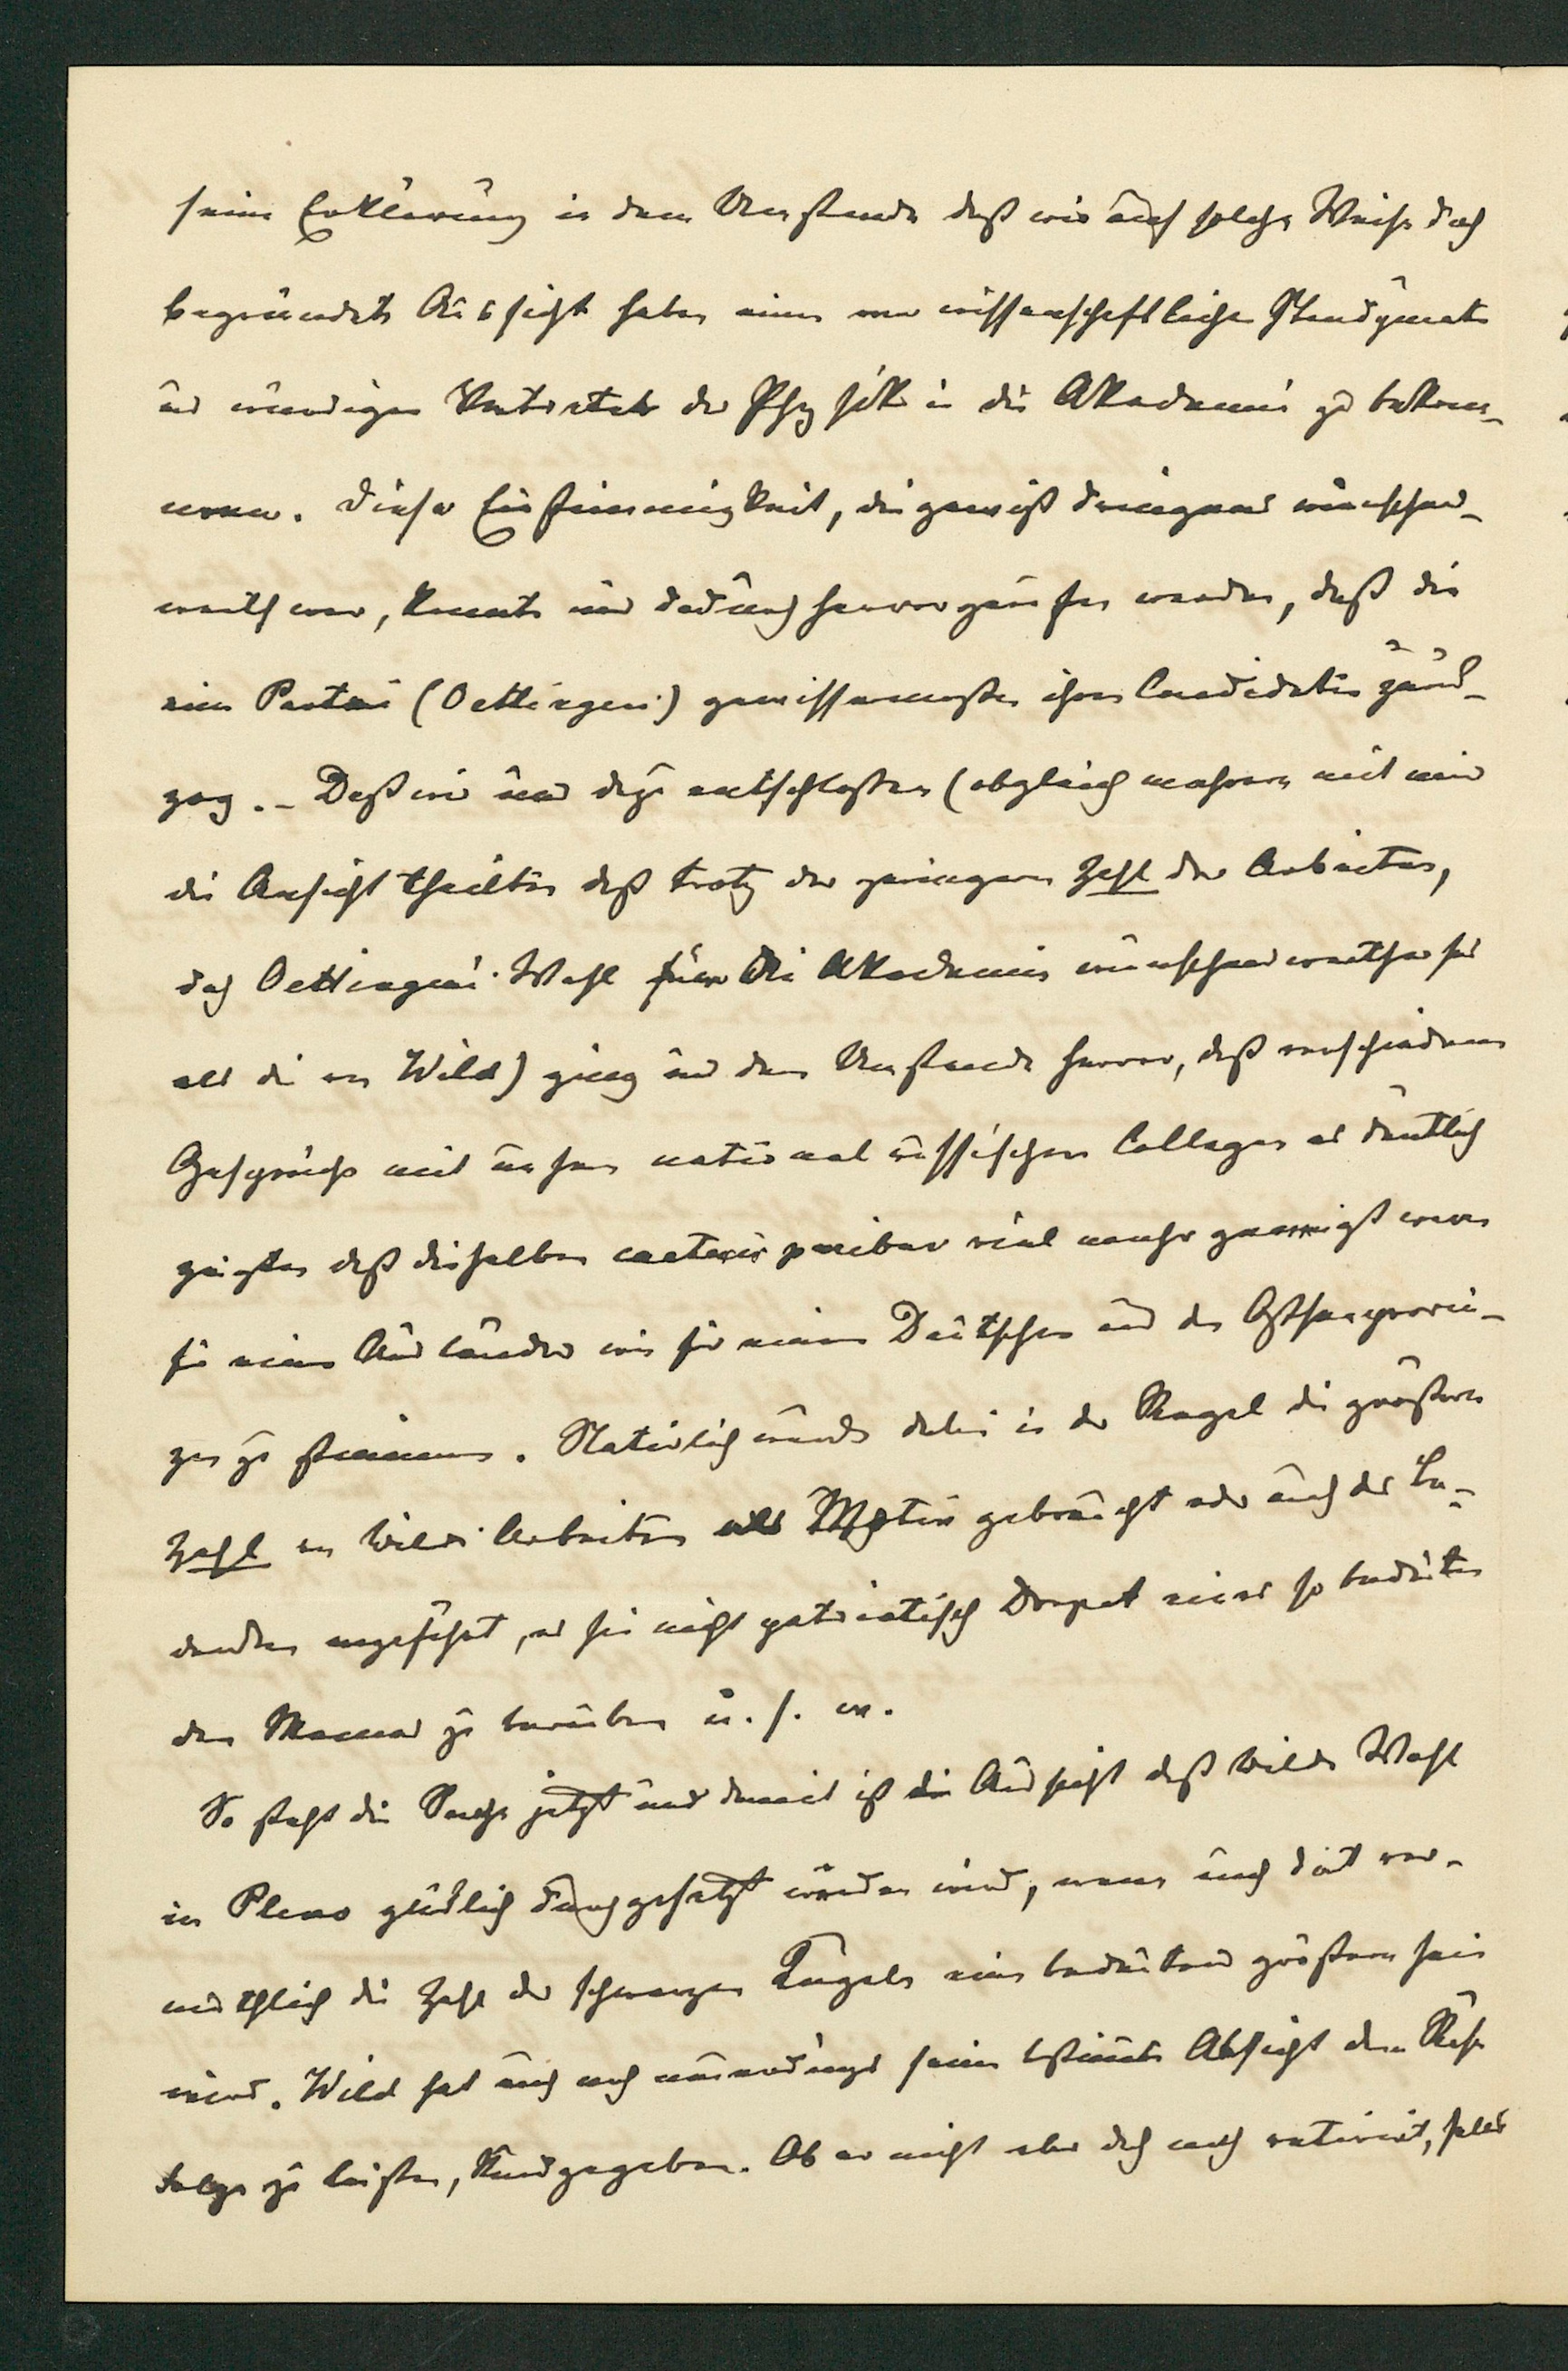 seine Erklärung in dem Umstande daß wir auf solche Weise doch
begründete Aussicht haben einen vom wissenschaftlichen Standpuncte
aus würdigen Vertreter der Physik in die Akademie zu bekom-
men. Diese Einstimmigkeit, die gewiß dringend wünschens-
werth war, konnte nur dadurch hervorgerufen werden, daß die
eine Partei (Oettingen) gewissermaßen ihren Candidaten zurück-
zog. – Daß wir uns dazu entschlossen (obgleich mehrere mit mir
die Ansicht theilten daß trotz der geringeren Zahl der Arbeiten,
doch Oettingens Wahl für die Akademie wünschenswerther sei
als die von Wild) ging aus dem Umstande hervor, daß verschiedene
Gespräche mit unsern national russischen Collegen es deutlich
zeigten daß dieselben caeteris paribus viel mehr geneigt waren
für einen Ausländer wie für einen Deutschen aus den Ostseeprovin-
zen zu stimmen. Natürlich wurde dabei in der Regel die größere
Zahl von Wilds Arbeiten als Motiv gebraucht oder auch das Be-
denken angeführt, es sei nicht patriotisch Dorpat eines so bedeuten
den Mannes zu berauben u. s. w.
So steht die Sache jetzt und damit ist die Aussicht daß Wilds Wahl
in Pleno glücklich durchgesetzt werden wird, wenn auch dort ver-
muthlich die Zahl der schwarzen Kugeln eine bedeutend größere sein
wird. Wild hat auch noch neuerdings seine bestimmte Absicht dem Rufe
Folge zu leisten, kundgegeben. Ob er nicht aber doch noch refüsirt, falls